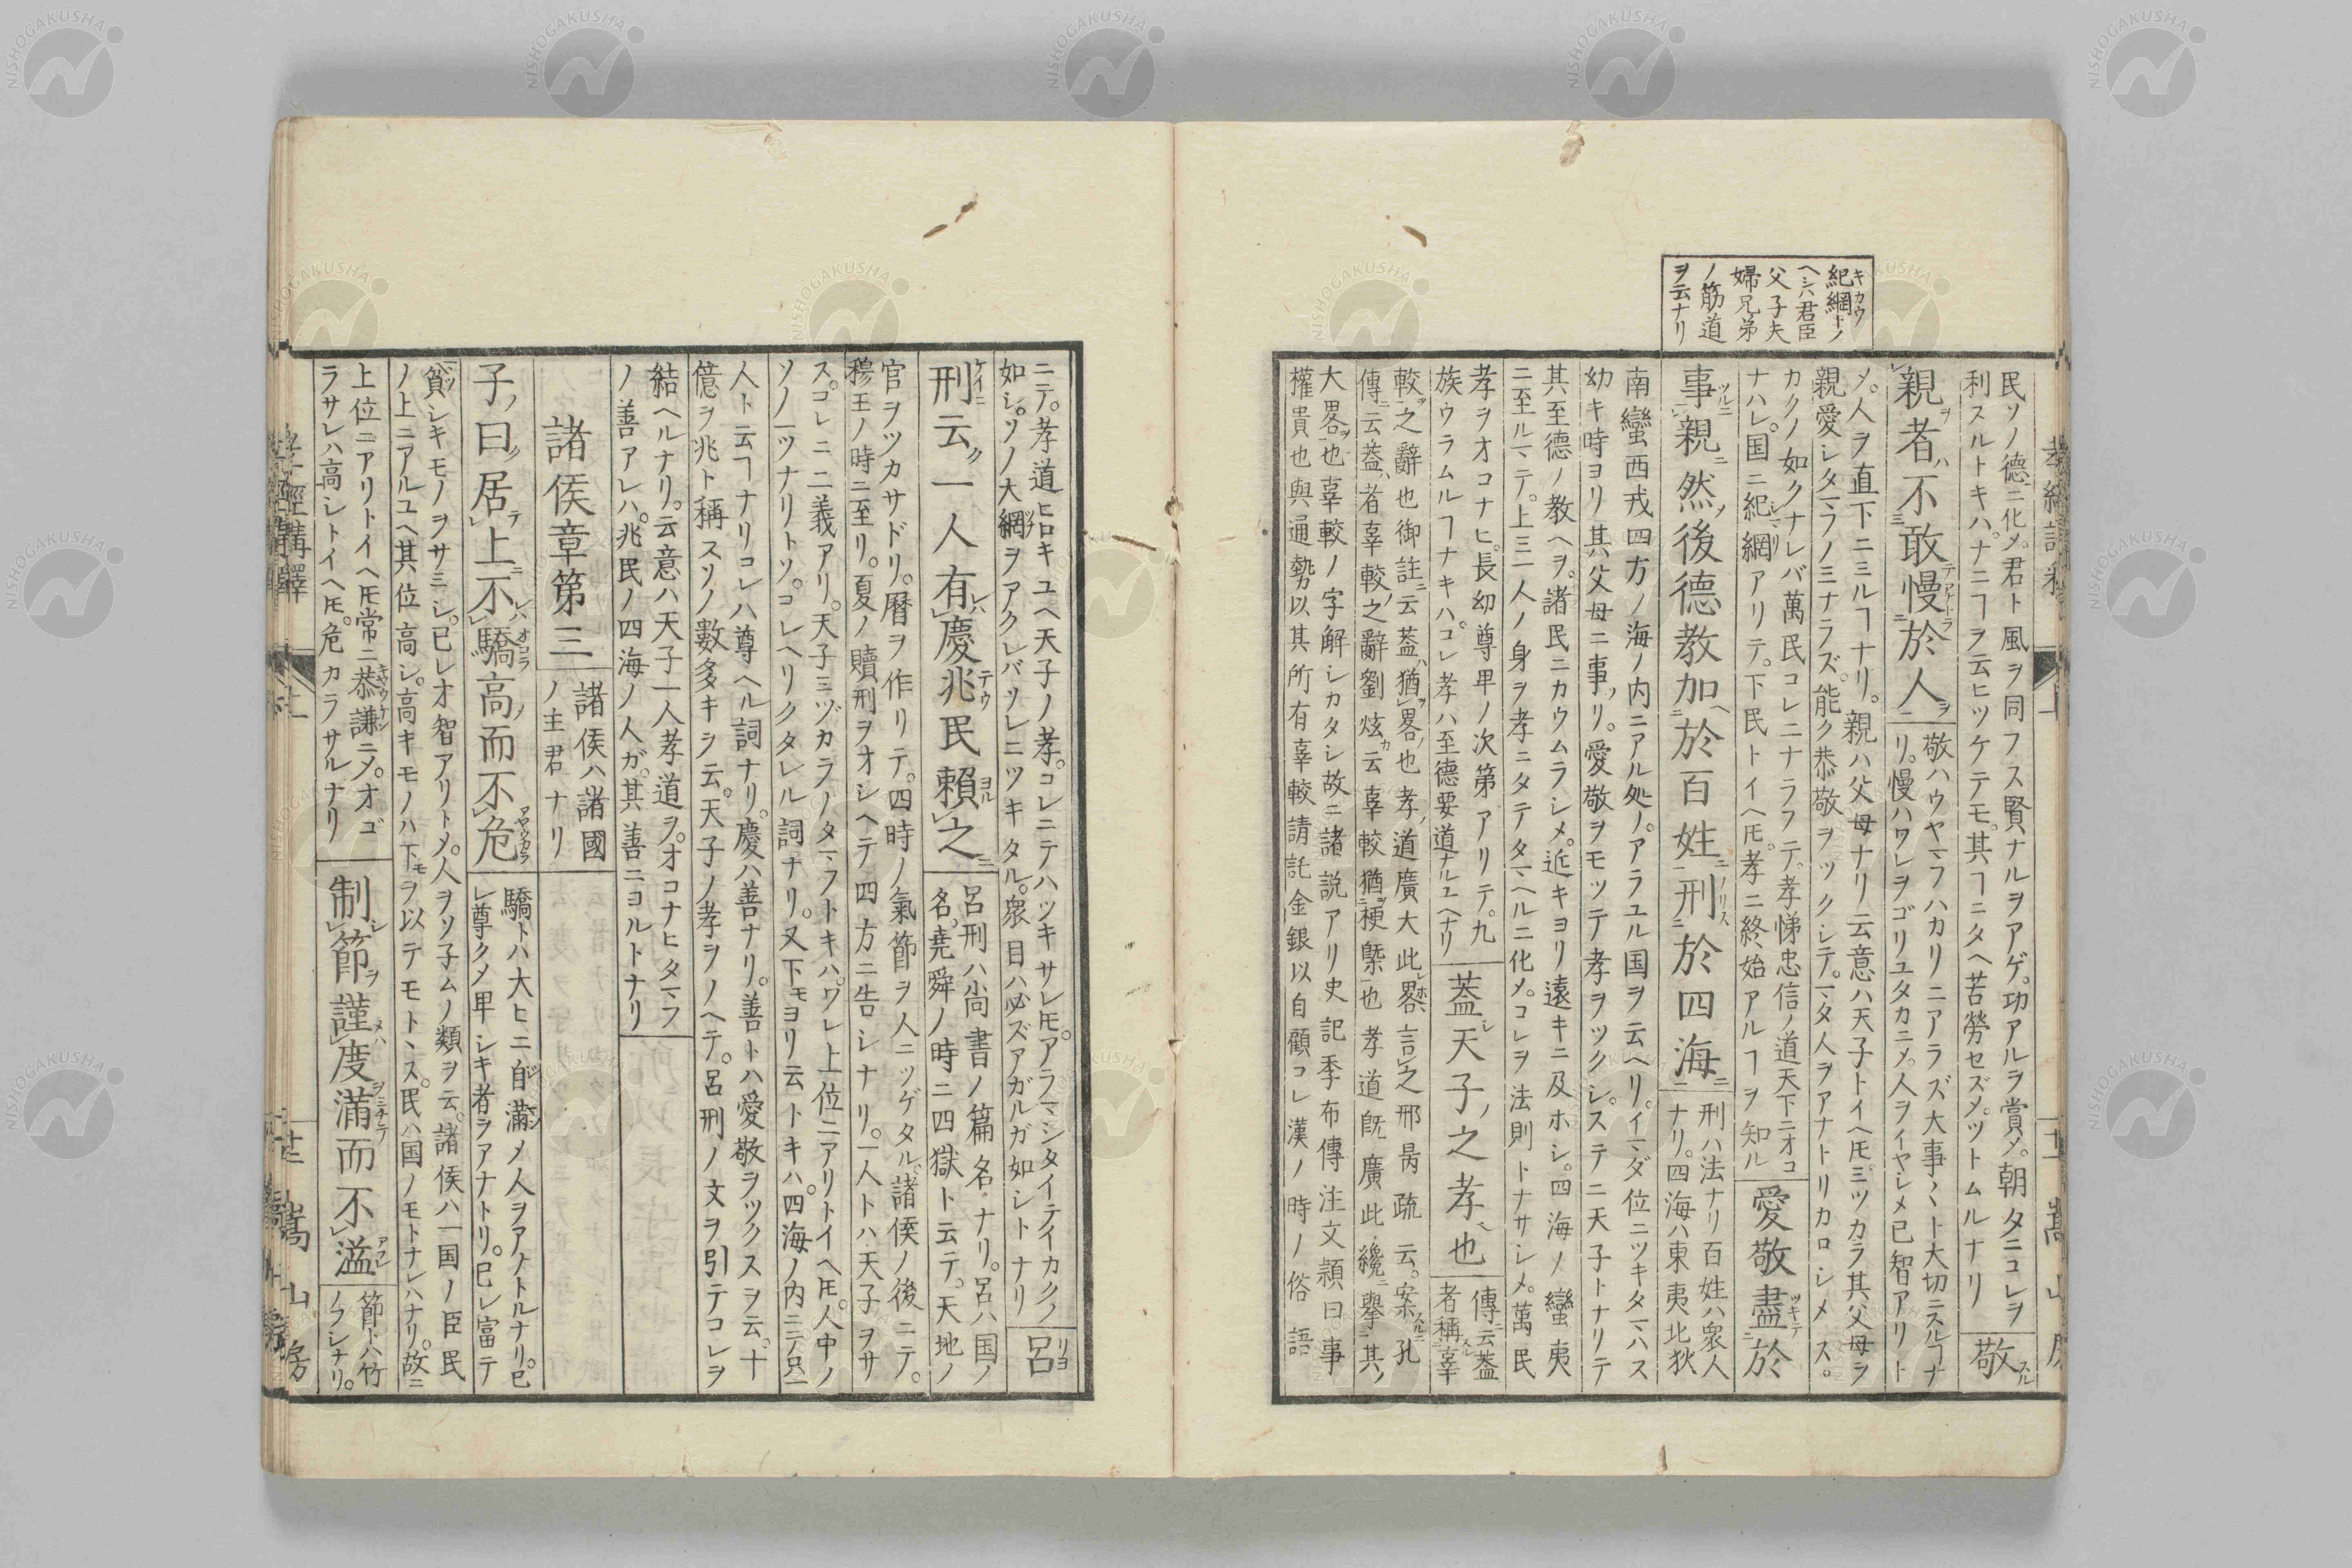 紀綱トノ
ヘシハ君臣
父子夫
婦兄弟
ノ筋道
ヲ云ナリ
民ソノ德ニ化メ。君ト風ヲ同フス賢ナルヲアゲ。功アルヲ賞メ。朝タニコレヲ
利スルトキハ。ナニヿヲ云ヒツケテモ。其ヿニタヘ苦勞セズメ。ツトムルナリ
敬
親者不敢慢於人
敬ハウヤマフハカリニアラズ大事〻ト大切ニスルヿナ
リ。慢ハワレヲゴリユタカニメ。人ヲイヤシメ已智アリト
メ。人ヲ直下ニミルヿナリ。親ハ父母ナリ云意ハ天子トイヘ𪜈。ミツカラ其父母ヲ
親愛シタマフノミナラズ。能ク恭敬ヲツクシテ。マタ人ヲアナトリカロシメス。
カクノ如クナレバ萬民コレニナラフテ。孝悌忠信ノ道天下ニオコ
ナハレ。国ニ紀綱アリテ。下民トイヘ𪜈。孝ニ終始アルヿヲ知ル
愛敬盡於
事親然後德教加於百姓刑於四海
刑ハ法ナリ百姓ハ衆人
ナリ。四海ハ東夷北狄
南蠻西戎四方ノ海ノ内ニアル処ノ。アラユル国ヲ云ヘリ。イマダ位ニツキタマハス
幼キ時ヨリ其父母ニ事リ。愛敬ヲモツテ孝ヲツクシ。ステニ天子トナリテ
其至德ノ教ヘヲ。諸民ニカウムラシメ。近キヨリ遠キニ及ホシ。四海ノ蠻夷
ニ至ルマテ。上三人ノ身ヲ孝ニタテタマヘルニ化メ。コレヲ法則トナサシメ。萬民
孝ヲオコナヒ。長幼尊卑ノ次第アリテ。九
族ウラムルヿナキハ。コレ孝ハ至德要道ナルユヘナリ
蓋天子之孝也
傳云蓋
者稱辜
較之辭也御註云蓋猶畧也孝道廣大此畧言之邢昺疏云。案孔
傳云蓋者辜較之辭劉炫云辜較猶梗槩也孝道既廣此纔擧其
大畧也辜較ノ字解シカタシ故ニ諸説アリ史記季布傳注文頴曰事
權貴也與通勢以其所有辜較請託金銀以自顧コレ漢ノ時ノ俗語
ニテ。孝道ヒロキユヘ天子ノ孝。コレニテハツキサレ𪜈。アラマシタイテイカクノ
如シ。ソノ大綱ヲアクレバソレニツキタル。衆目ハ必ズアガルガ如シトナリ
呂
刑云一人有慶兆民賴之
呂刑ハ尚書ノ篇名ナリ。呂ハ国ノ
名。堯舜ノ時ニ四獄ト云テ。天地ノ
官ヲツカサドリ。暦ヲ作リテ。四時ノ氣節ヲ人ニツゲタル。諸侯ノ後ニテ。
穆王ノ時ニ至リ。夏ノ贖刑ヲオシヘテ四方ニ告シナリ。一人トハ天子ヲサ
ス。コレニ二義アリ。天子ミヅカラノタマフトキハ。ワレ上位ニアリトイヘ𪜈。人中ノ
ソノ一ツナリトソ。コレヘリクタレル詞ナリ。又下モヨリ云トキハ。四海ノ内ニテ只一
人ト云ヿナリコレハ尊ヘル詞ナリ。慶ハ善ナリ。善トハ愛敬ヲツクスヲ云。十
億ヲ兆ト稱スソノ數多キシ云。天子ノ孝ヲノヘテ。呂刑ノ文ヲ引テコレヲ
結ヘルナリ。云意ハ天子一人孝道ヲ。オコナヒタマフ
ノ善アレハ。兆民ノ四海ノ人ガ。其善ニヨルトナリ
諸侯章第三
諸侯ハ諸國
ノ主君ナリ
子曰居上不驕高而不危
驕トハ大ヒニ自滿メ人ヲアナトルナリ。已
レ尊クメ卑シキ者ヲアナトリ。已レ富テ
貧シキモノヲサミシ。已レオ智アリトメ。人ヲソ子ムノ類ヲ云。諸侯ハ一国ノ臣民
ノ上ニアルユヘ其位高シ。高キモノハ下モヲ以テモトヽス。民ハ国ノモトナレハナリ。故ニ
上位ニアリトイヘ𪜈常ニ恭謙ニメ。オゴ
ラサレハ高シトイヘ𪜈。危カラサルナリ
制節謹度滿而不溢
節トハ竹
ノフシナリ。
孝經講釋
十一
嵩山房